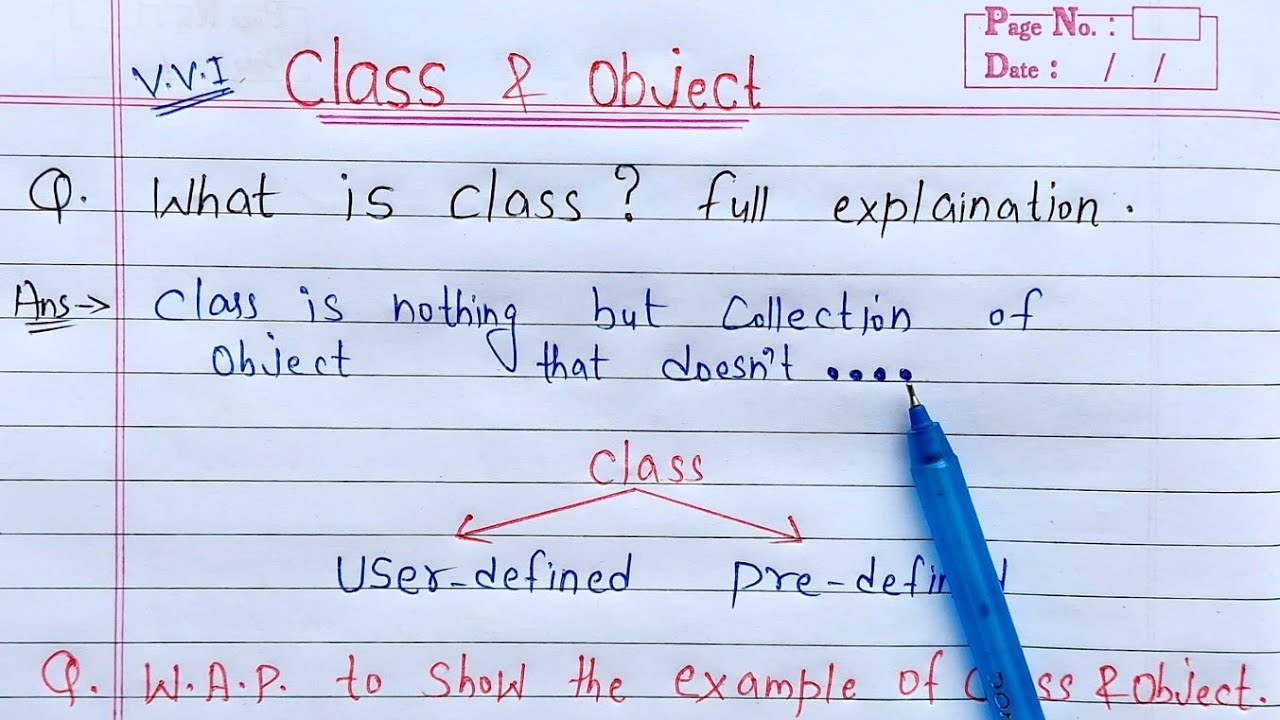 Page No. :
Date : / /
V.V.I Class & Object
Q. What is class? full explaination.
Ans→ Class is nothing but Collection of
Object that doesn't ....
Class
User-defined Pre-defin
Q. W.A.P. to show the example of C ss & Object.